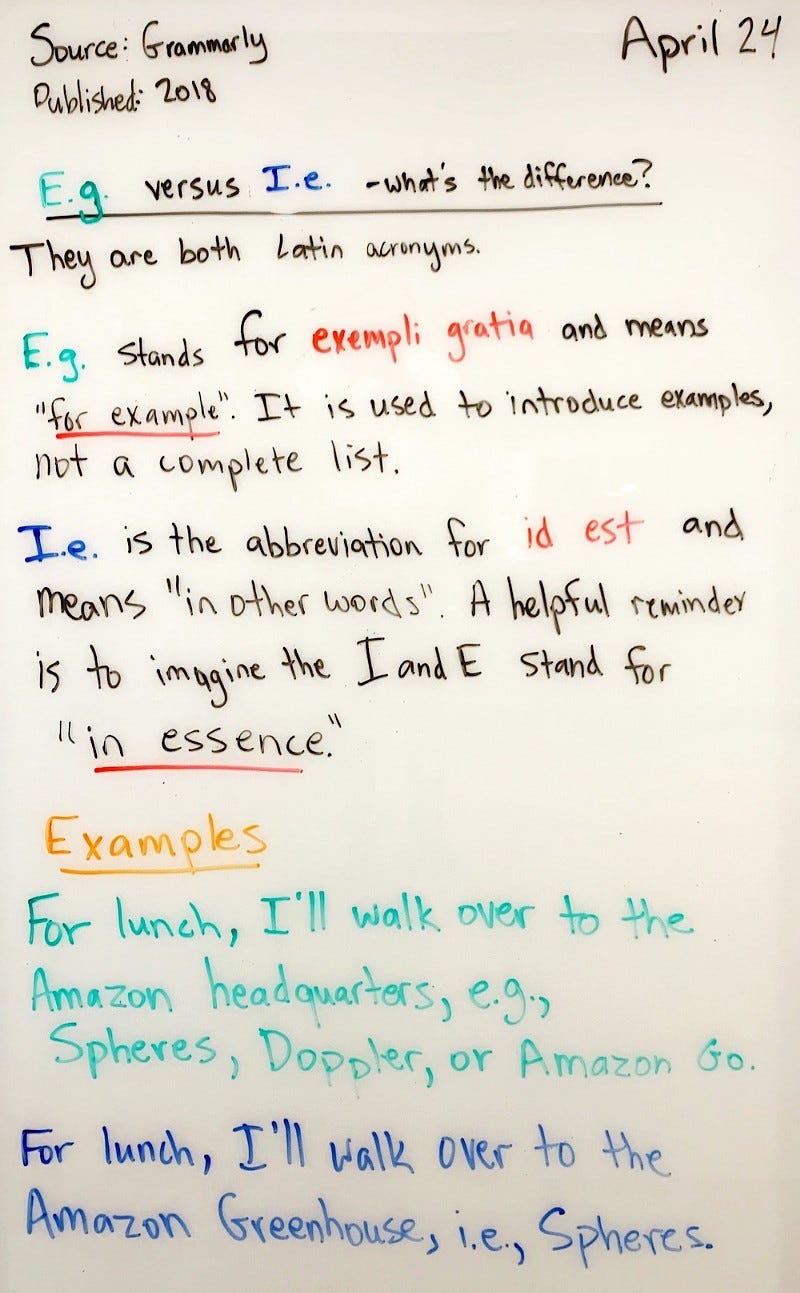 Source: Grammarly
April 24
Published: 2018
E.g. versus I.e. -what's the difference?
They are both Latin acronyms.
E.g. stands for exempli gratia and means
"for example". It is used to introduce examples,
not a complete list.
I.e. is the abbreviation for id est and
means "in other words". A helpful reminder
is to imagine the I and E stand for
"in essence."
Examples
For lunch, I'll walk over to the
Amazon headquarters, e.g.,
Spheres, Doppler, or Amazon Go.
For lunch, I'll walk over to the
Amazon Greenhouse, i.e., Spheres.